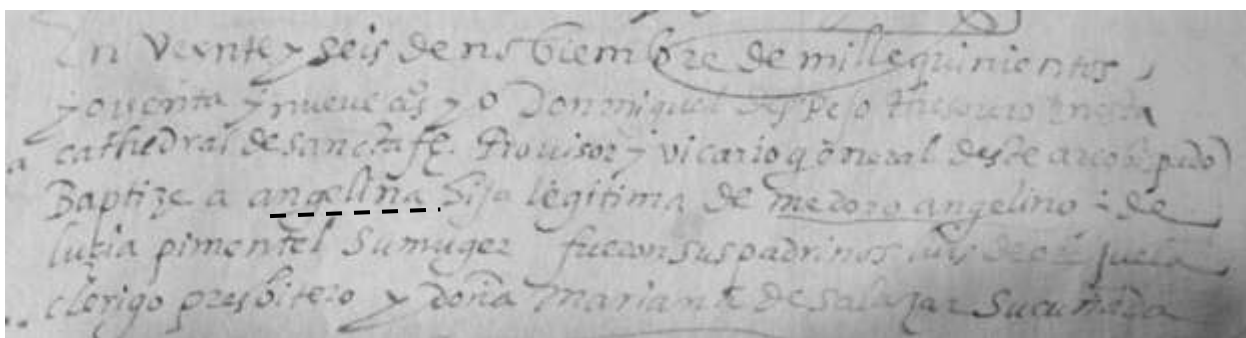 En Veynte y seis de nobiembre de mill e quinientos
y ouenta y nueue años yo Don miguel despejo thesorero en esta
cathedral de sancta fe. Prouisor y vicario general deste arcobispado
Baptize a angelina hija legitima de medoro angelino i de
luzia pimentel su muger fueron sus padrinos luis de
clerigo presbitero y doña mariana de salazar su cuñada